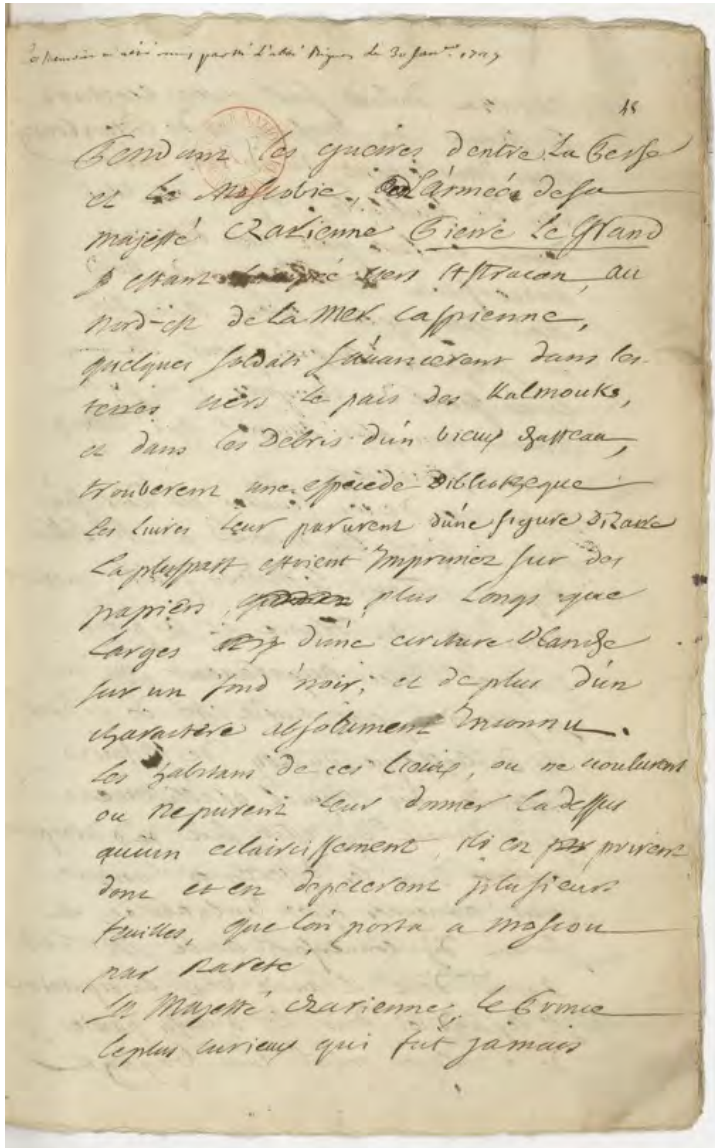 Ce memoire a été remis par Mr l'abbé Bignon le 30 Janv.er
48
Pendant les guerres d'entre La Perse
et la Moscovie, L'armée de sa
majesté Czarienne Pierre Le Grand
estant vers Astracan, au
nord-est de La Mer Caspienne,
quelques soldats s'avancerent dans les
terres vers le païs des Kalmouks,
et dans les Debris d'un vieux chasteau,
trouverent une espece de Bibliotheque
Les Livres leur parurent d'une figure Bizarre
La pluspart estoient Imprimez sur des
papiers plus Longs que
Larges d'une écriture Blanche
sur un fond noir, et de plus d'un
charactère absolument Inconnu.
Les habitans de ces lieux, ou ne voulurent
ou ne purent leur donner La dessus
aucun eclaircissement, ils en prirent
donc et en depecerent plusieurs
feuilles, que l'on porta a Moscou
par Rareté
Sa Majesté Czarienne, le Prince
le plus curieux qui fut jamais